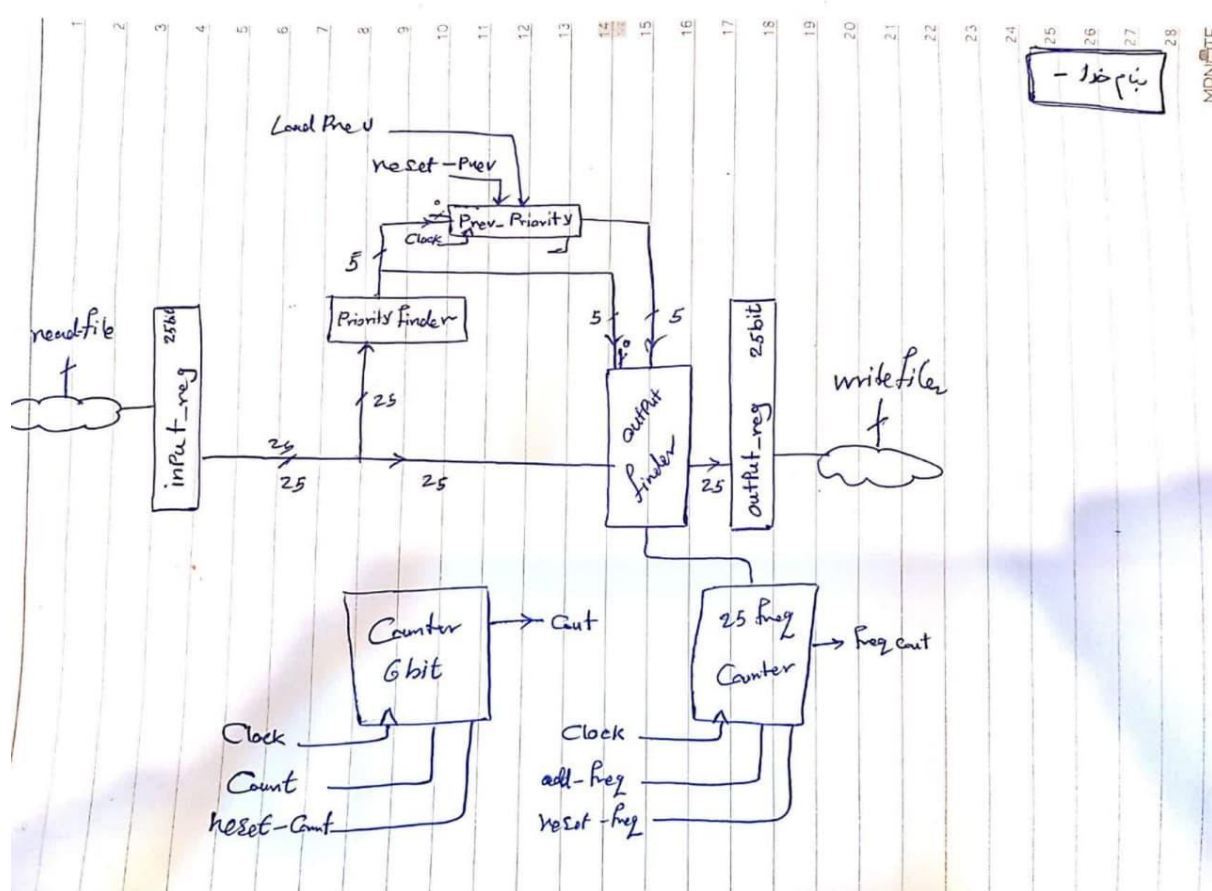 1 2 3 4 5 6 7 8 9 10 11 12 13 14 15 16 17 18 19 20 21 22 23 24 25 26 27 28
بنام خدا -
Load Prev
reset-Prev
Prev-Priority
Clock
5
Priority finder
5
5
read file
input_reg 25bit
25
25
25
output finder
25
output_reg 25bit
write file
Counter 6bit
Cout
Clock
Count
reset-Count
25 freq Counter
freq cout
Clock
add-freq
reset-freq